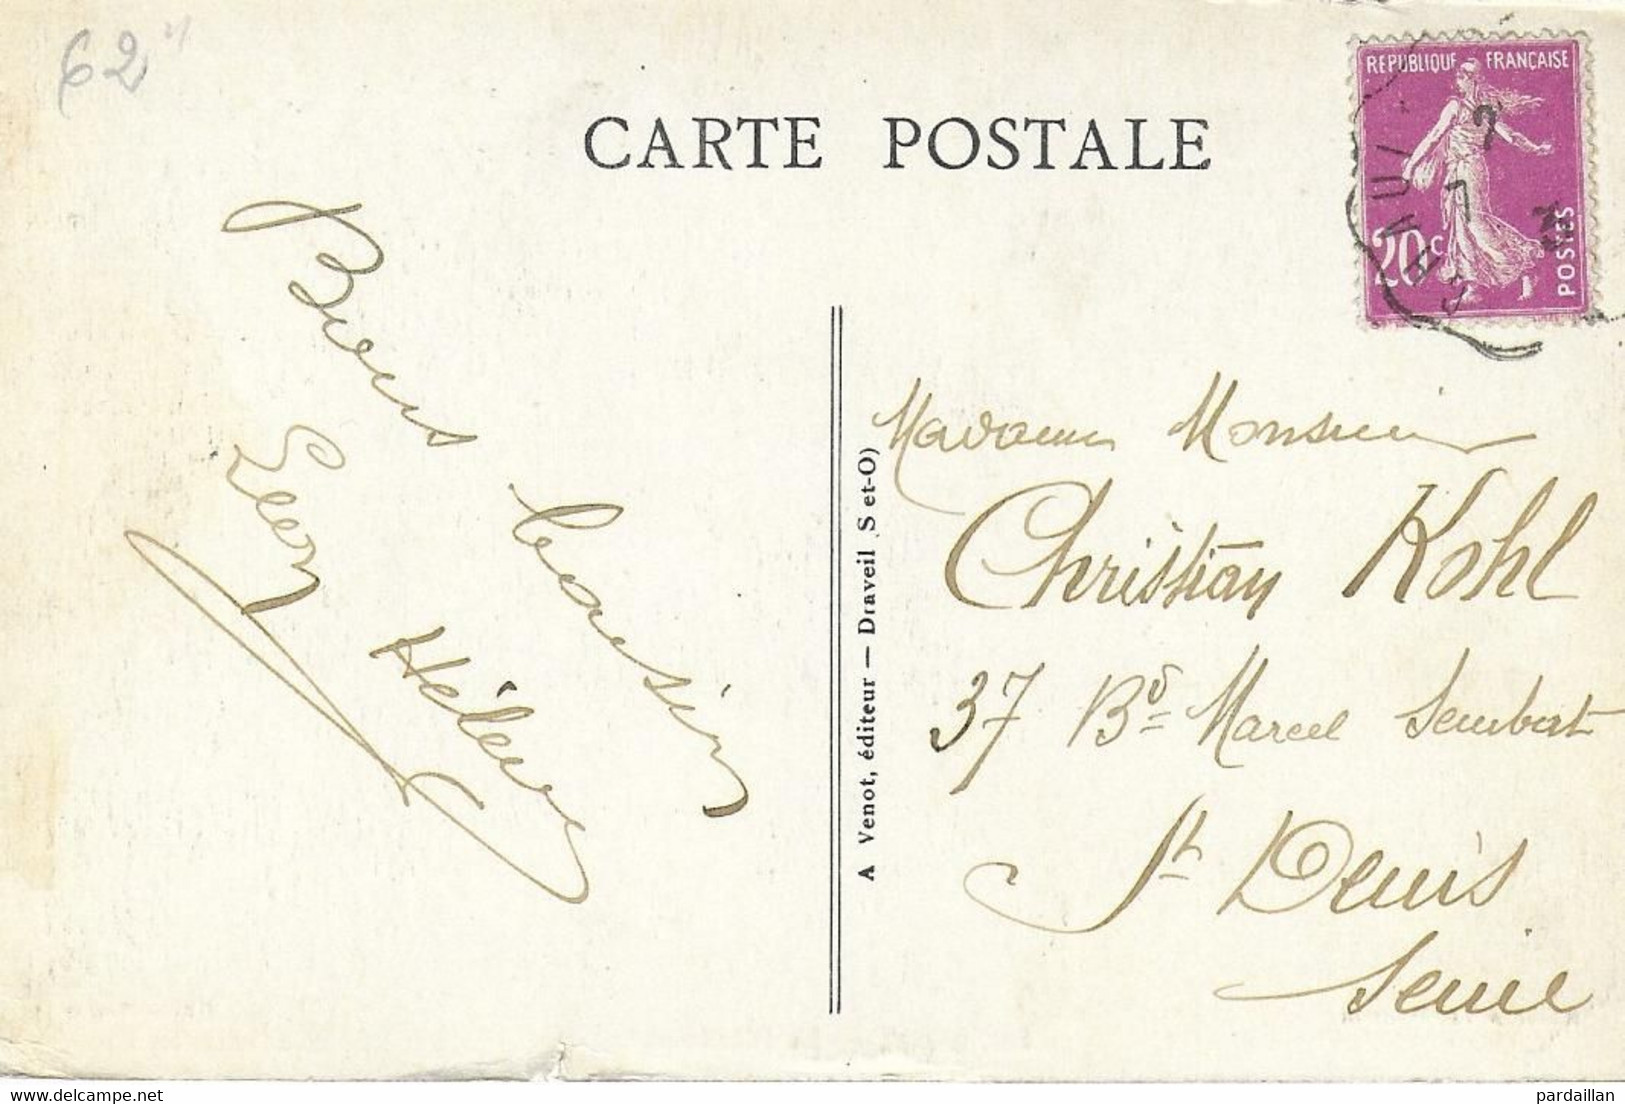 62
CARTE POSTALE
REPUBLIQUE FRANÇAISE
20c
POSTES
Bons baisers
Léon Hélène
A Venot, éditeur — Draveil (S et-O)
Madame Monsieur
Christian Kohl
37 Bd Marcel Sembat
St Denis
Seine
www.delcampe.net
pardaillan